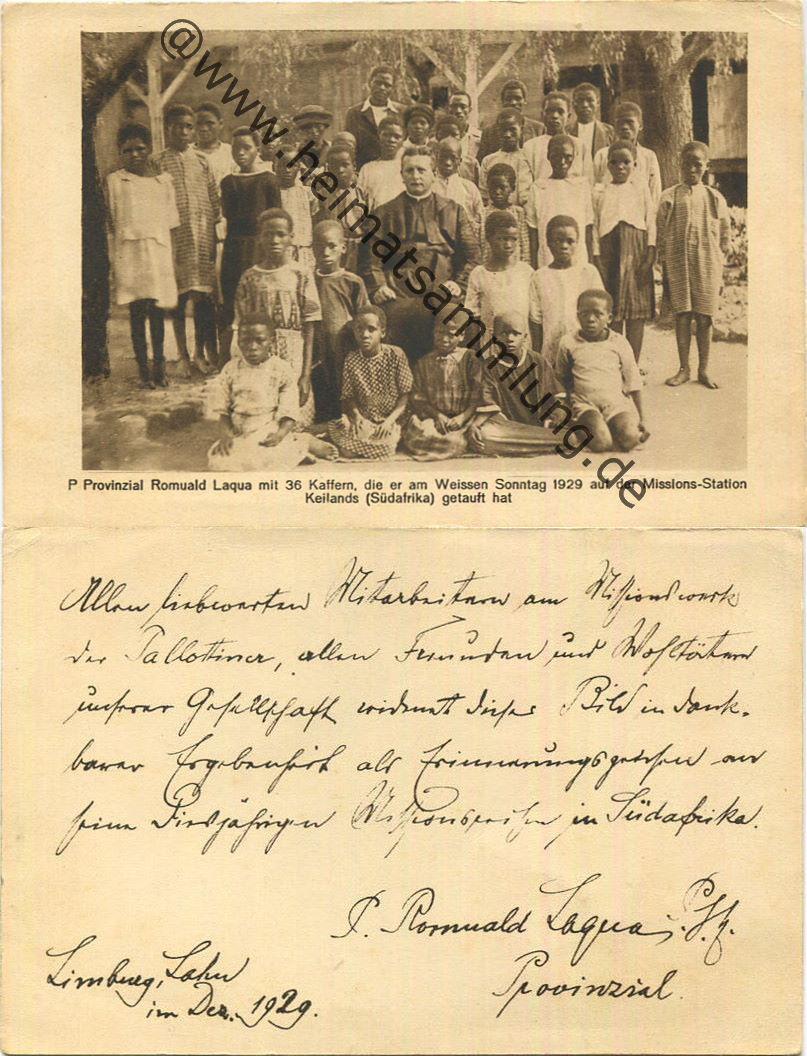 @www.heimatsammlung.de
P Provinzial Romuald Laqua mit 36 Kaffern, die er am Weissen Sonntag 1929 auf der Missions-Station
Keilands (Südafrika) getauft hat
Allen liebwerten Mitarbeitern am Missionswerk
der Pallottiner, allen Freunden und Wohltätern
unserer Gesellschaft widmet dieses Bild in dank-
barer Ergebenheit als Erinnerungszeichen an
seine diesjährigen Missionsreisen in Südafrika.
P. Romuald Laqua P.S.M.
Provinzial.
Limburg, Lahn
im Dez. 1929.